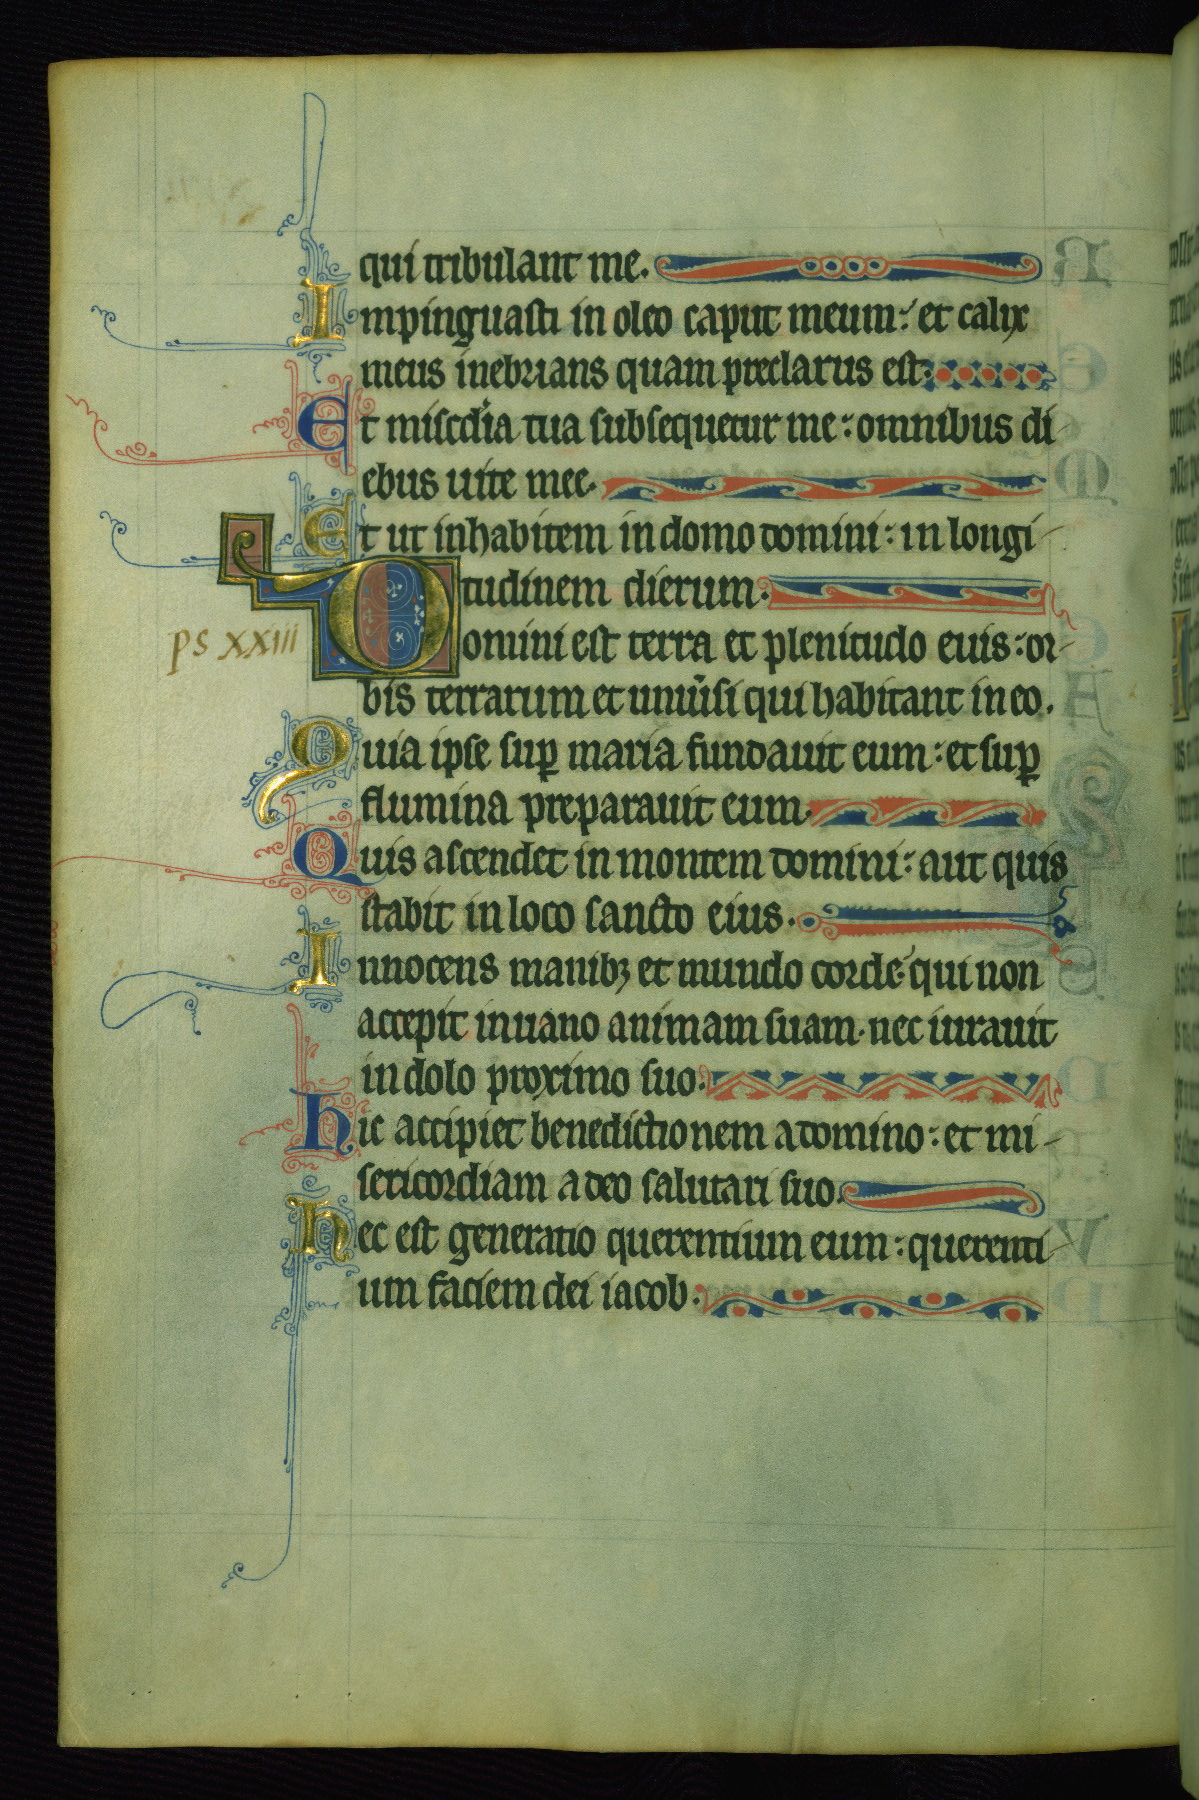 qui tribulant me.
Impinguasti in oleo caput meum: et calix
meus inebrians quam preclarus est.
Et miscd'ia tua subsequetur me: omnibus di
ebus uite mee.
Et ut inhabitem in domo domini: in longi
tudinem dierum.
ps XXIII
Domini est terra et plenitudo euis: or
bis terrarum et uniu'si qui habitant in eo.
Quia ipse sup̲ maria fundauit eum: et sup̲
flumina preparauit eum.
Quis ascendet in montem domini: aut quis
stabit in loco sancto eius.
Innocens manibꝫ et mundo corde: qui non
accepit in uano animam suam. nec iurauit
in dolo proximo suo.
hic accipiet benedictionem a domino: et mi
sericordiam a deo salutari suo.
hec est generatio querentium eum: querenti
um faciem dei iacob.